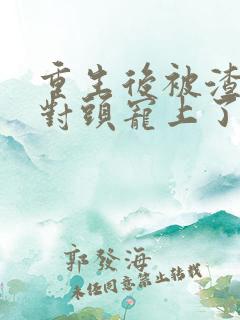 重生後被渣
對頭寵上了
郭發海
未经同意禁止转载